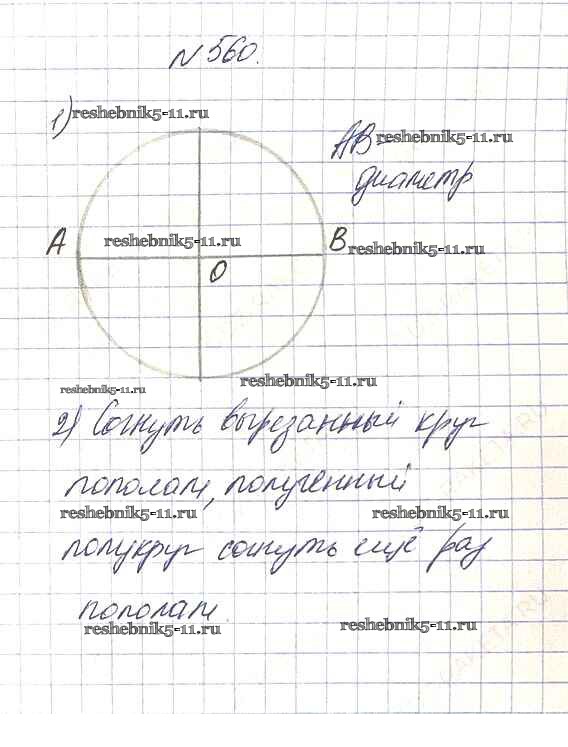 N 560.
1) reshebnik5-11.ru
AB - reshebnik5-11.ru
диаметр
A reshebnik5-11.ru B reshebnik5-11.ru
O
reshebnik5-11.ru reshebnik5-11.ru
2) Согнуть вырезанный круг
пополам, полученный
reshebnik5-11.ru reshebnik5-11.ru
полукруг согнуть ещё раз
пополам.
reshebnik5-11.ru reshebnik5-11.ru